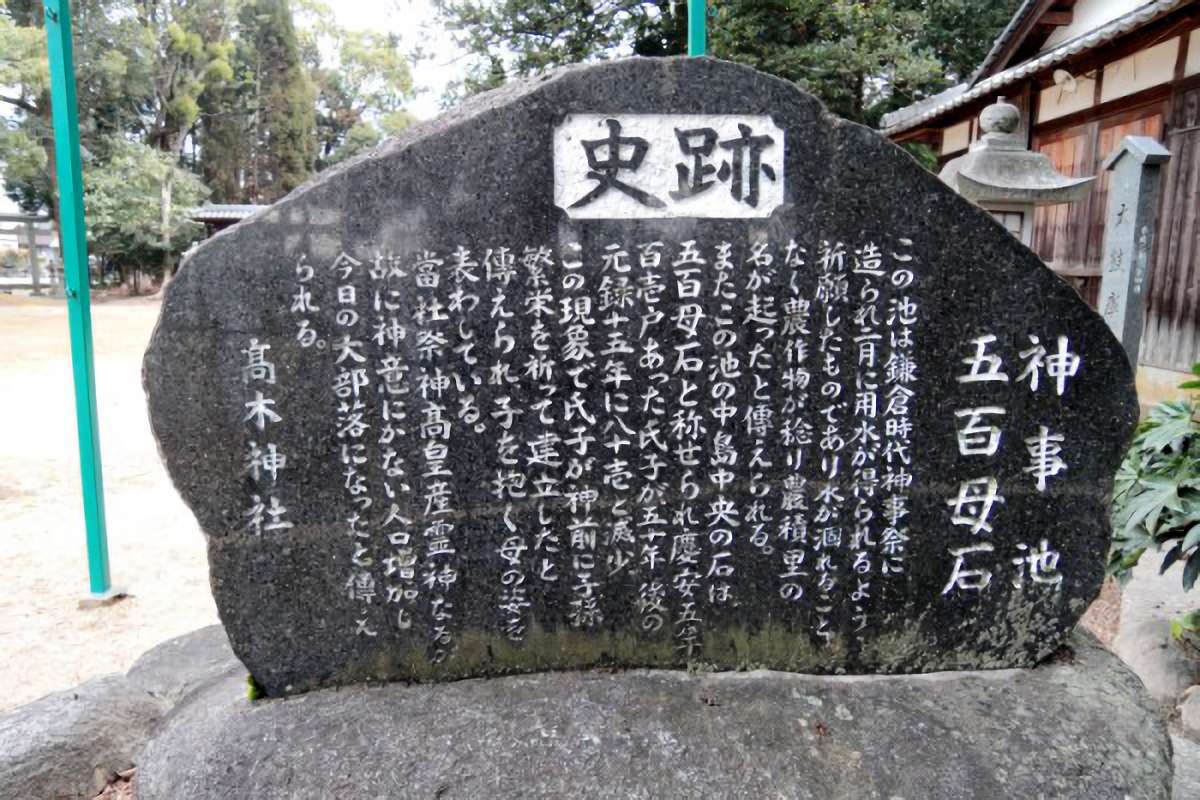 史跡
神事池
五百母石
この池は鎌倉時代神事祭に
造られ一月に用水が得られるよう
祈願したものであり水が涸れること
なく農作物が稔り農積里の
名が起ったと傳えられる。
またこの池の中島中央の石は
五百母石と称せられ慶安五年
百壱戸あった氏子が五十年後の
元録十五年に八十壱と減少
この現象で氏子が神前に子孫
繁栄を祈って建立したと
傳えられ子を抱く母の姿を
表わしている。
當社祭神髙皇産霊神なるが
故に神意にかない人口増加し
今日の大部落になったと傳え
られる。
髙木神社